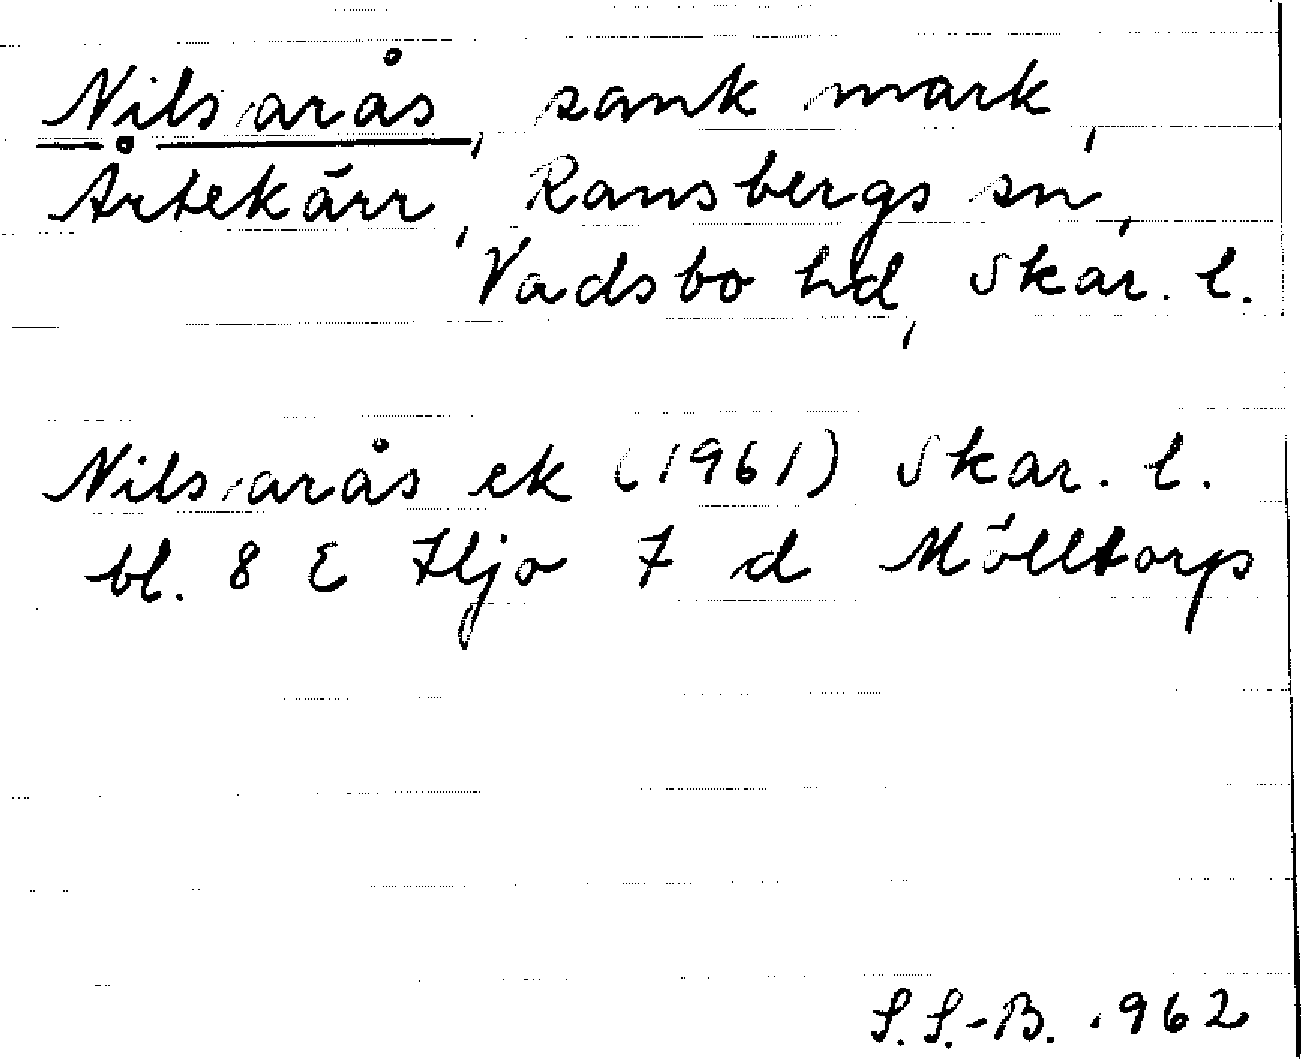 Nilsarås, sank mark,
Årtekärr, Ransbergs sn,
Vadsbo hd, Skar. l.
Nilsarås ek (1961) Skar. l.
bl. 8 E Hjo 7 d Mölltorp
S.S.-B. 1962